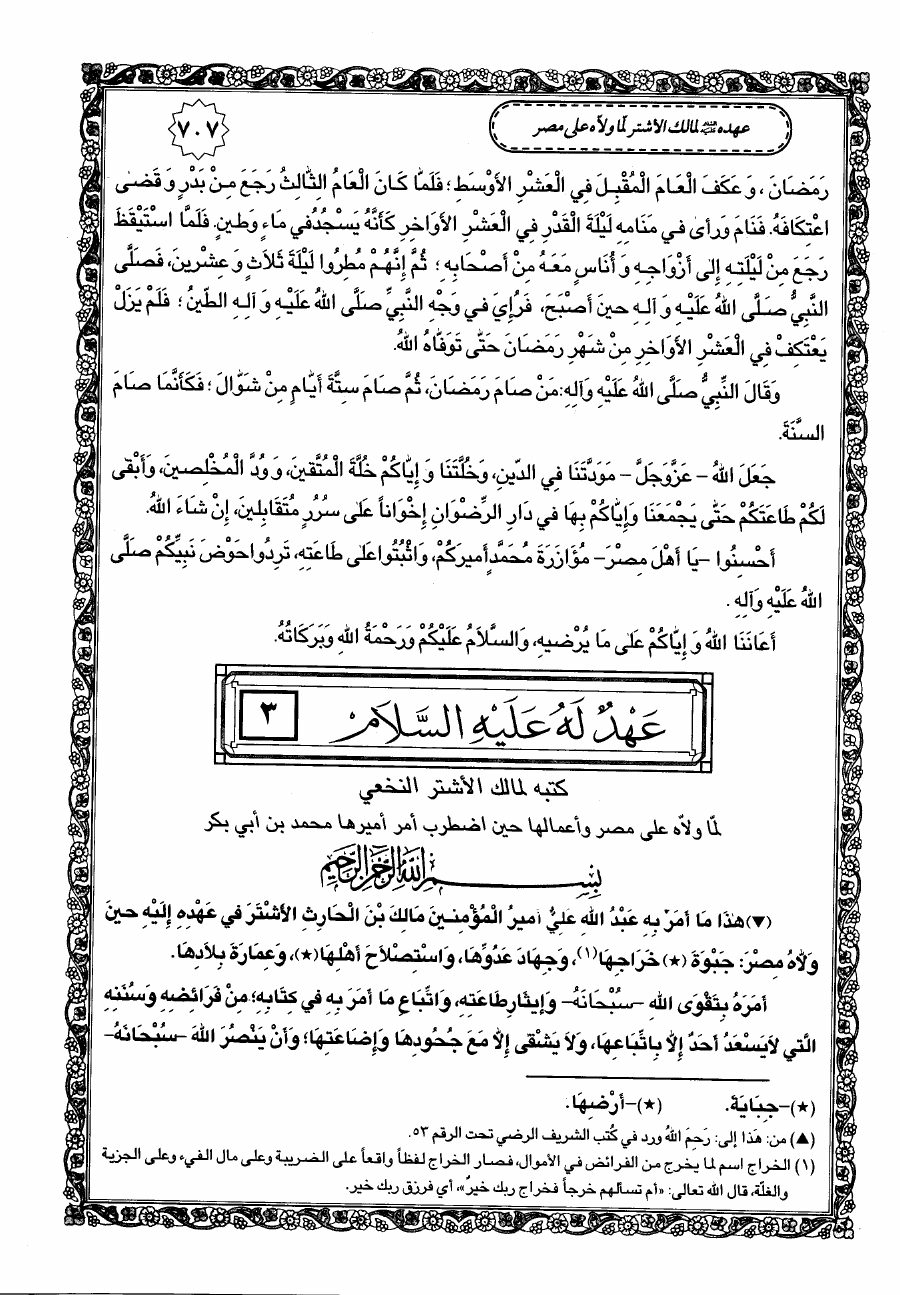 عهده عليه السلام لمالك الأشتر لمّا ولاّه على مصر
٧٠٧
رَمَضَانَ، وَ عَكَفَ الْعَامَ الْمُقْبِلَ فِي الْعَشْرِ الأَوْسَطِ؛ فَلَمَّا كَانَ الْعَامُ الثَّالِثُ رَجَعَ مِنْ بَدْرٍ وَ قَضَى
اعْتِكَافَهُ. فَنَامَ وَرَأَى في مَنَامِهِ لَيْلَةَ الْقَدْرِ فِي الْعَشْرِ الأَوَاخِرِ كَأَنَّهُ يَسْجُدُ في مَاءٍ وَطينٍ. فَلَمَّا اسْتَيْقَظَ
رَجَعَ مِنْ لَيْلَتِهِ إِلى أَزْوَاجِهِ وَ أُنَاسٍ مَعَهُ مِنْ أَصْحَابِهِ؛ ثُمَّ إِنَّهُمْ مُطِرُوا لَيْلَةَ ثَلاَثٍ وَ عِشْرينَ، فَصَلَّى
النَّبِيُّ صَلَّى اللهُ عَلَيْهِ وَ آلِهِ حينَ أَصْبَحَ، فَرُإِيَ في وَجْهِ النَّبِيِّ صَلَّى اللهُ عَلَيْهِ وَ آلِهِ الطّينُ؛ فَلَمْ يَزَلْ
يَعْتَكِفُ فِي الْعَشْرِ الأَوَاخِرِ مِنْ شَهْرِ رَمَضَانَ حَتَّى تَوَفَّاهُ اللهُ.
وَقَالَ النَّبِيُّ صَلَّى اللهُ عَلَيْهِ وَآلِهِ: مَنْ صَامَ رَمَضَانَ، ثُمَّ صَامَ سِتَّةَ أَيَّامٍ مِنْ شَوَّالَ؛ فَكَأَنَّمَا صَامَ
السَّنَةَ.
جَعَلَ اللهُ – عَزَّ وَجَلَّ – مَوَدَّتَنَا فِي الدّينِ، وَخُلَّتَنَا وَ إِيَّاكُمْ خُلَّةَ الْمُتَّقينَ، وَ وُدَّ الْمُخْلِصينَ، وَأَبْقى
لَكُمْ طَاعَتَكُمْ حَتَّى يَجْمَعَنَا وَإِيَّاكُمْ بِهَا في دَارِ الرِّضْوَانِ إِخْوَاناً عَلى سُرُرٍ مُتَقَابِلينَ، إِنْ شَاءَ اللهُ.
أَحْسِنُوا –يَا أَهْلَ مِصْرَ– مُؤَازَرَةَ مُحَمَّدٍ أَميرِكُمْ، وَاثْبُتُوا عَلى طَاعَتِهِ، تَرِدُوا حَوْضَ نَبِيِّكُمْ صَلَّى
اللهُ عَلَيْهِ وَآلِهِ.
أَعَانَنَا اللهُ وَ إِيَّاكُمْ عَلى مَا يُرْضيهِ، وَالسَّلاَمُ عَلَيْكُمْ وَرَحْمَةُ اللهِ وَبَرَكَاتُهُ.
عَهْدٌ لَهُ عَلَيْهِ السَّلاَمُ ٣
كتبه لمالك الأشتر النخعي
لمّا ولاّه على مصر وأعمالها حين اضطرب أمر أميرها محمد بن أبي بكر
بِسْمِ اللهِ الرَّحْمنِ الرَّحيمِ
(▼) هذَا مَا أَمَرَ بِهِ عَبْدُ اللهِ عَلِيٌّ أَميرُ الْمُؤْمِنينَ مَالِكَ بْنَ الْحَارِثِ الأَشْتَرَ في عَهْدِهِ إِلَيْهِ حينَ
وَلاَّهُ مِصْرَ: جَبْوَةَ (★) خَرَاجِهَا(١)، وَجِهَادَ عَدُوِّهَا، وَاسْتِصْلاَحَ أَهْلِهَا(★)، وَعِمَارَةَ بِلاَدِهَا.
أَمَرَهُ بِتَقْوَى اللهِ –سُبْحَانَهُ– وَإيثَارِ طَاعَتِهِ، وَاتِّبَاعِ مَا أَمَرَ بِهِ في كِتَابِهِ؛ مِنْ فَرَائِضِهِ وَسُنَنِهِ
الَّتي لاَ يَسْعَدُ أَحَدٌ إِلاَّ بِاتِّبَاعِهَا، وَلاَ يَشْقى إِلاَّ مَعَ جُحُودِهَا وَإِضَاعَتِهَا؛ وَأَنْ يَنْصُرَ اللهَ –سُبْحَانَهُ–
(★)–جِبَايَةَ. (★)–أَرْضِهَا.
(▲) من: هذا إلى: رَحِمَ اللهُ ورد في كُتب الشريف الرضي تحت الرقم ٥٣.
(١) الخراج اسم لما يخرج من الفرائض في الأموال، فصار الخراج لفظاً واقعاً على الضريبة وعلى مال الفيء وعلى الجزية
والغلّة، قال الله تعالى: «أم تسألهم خرجاً فخراج ربك خيرٌ»، أي فرزق ربك خير.